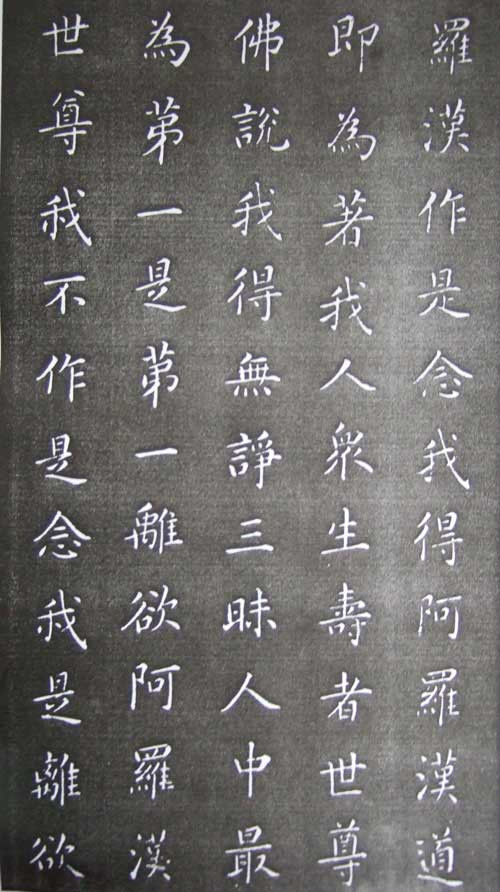 羅漢作是念我得阿羅漢道
即為著我人眾生壽者世尊
佛說我得無諍三昧人中最
為第一是第一離欲阿羅漢
世尊我不作是念我是離欲